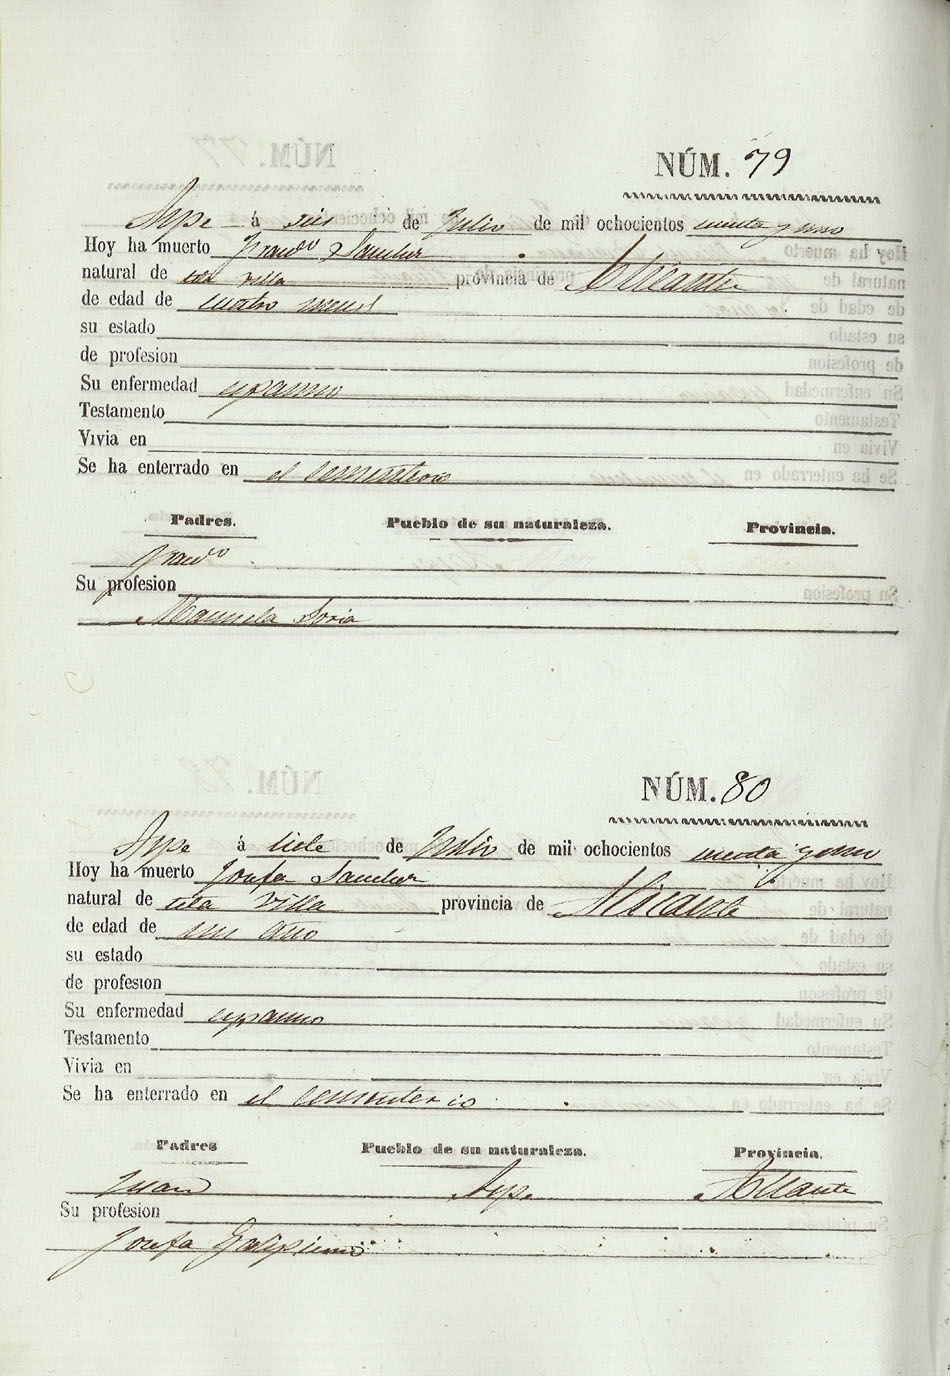 NÚM. 79
Aspe á seis de Julio de mil ochocientos cuenta y uno
Hoy ha muerto Fran.co Sanchez
natural de esta villa provincia de Alicante
de edad de cuatro meses
su estado
de profesion
Su enfermedad espasmo
Testamento
Vivia en
Se ha enterrado en el sementerio
Padres. Pueblo de su naturaleza. Provincia.
Fran.co
Su profesion
Manuela Soria
NÚM. 80
Aspe á siete de Julio de mil ochocientos cuenta y uno
Hoy ha muerto Josefa Sanchez
natural de esta villa provincia de Alicante
de edad de un año
su estado
de profesion
Su enfermedad espasmo
Testamento
Vivia en
Se ha enterrado en el sementerio
Padres Pueblo de su naturaleza. Provincia.
Juan Aspe Alicante
Su profesion
Josefa